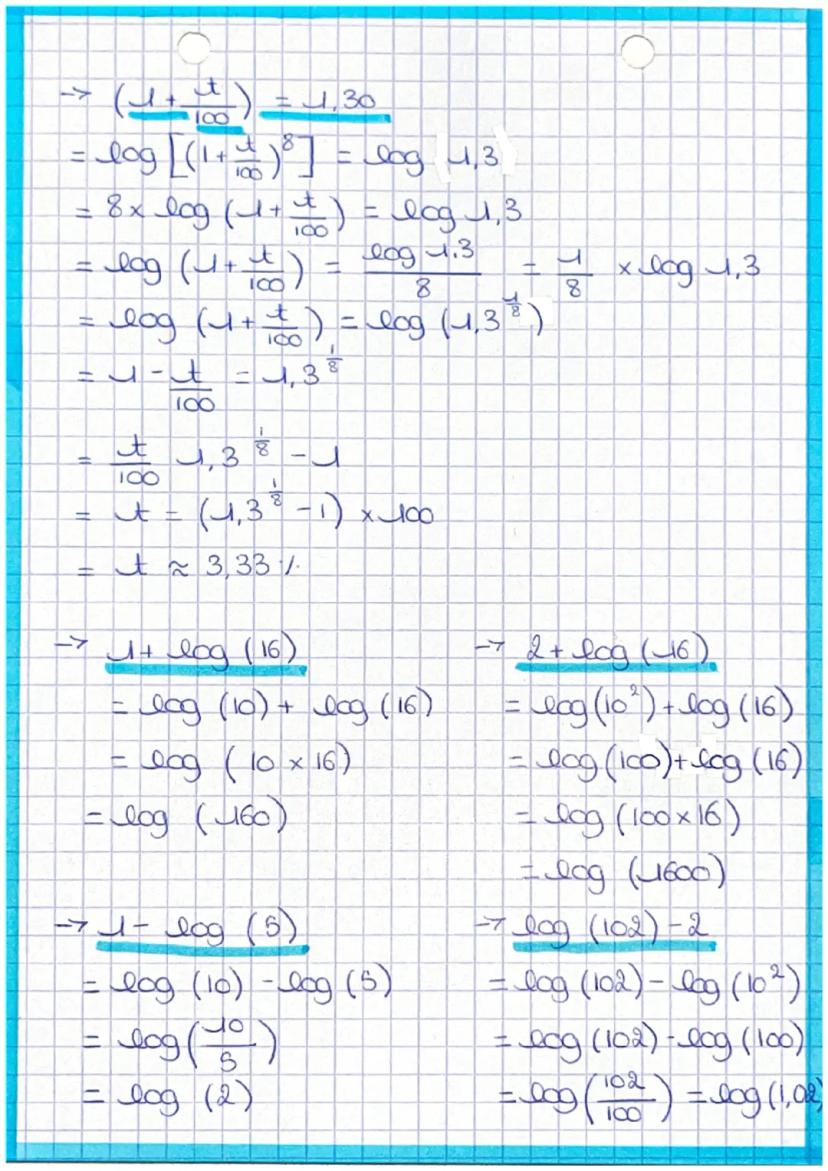 → (1 + t/100) = 1,30
= log [(1 + t/100)^8] = log (1,3)
= 8 × log (1 + t/100) = log 1,3
= log (1 + t/100) = log 1,3 / 8 = 1/8 × log 1,3
= log (1 + t/100) = log (1,3^1/8)
= 1 - t/100 = 1,3^1/8
= t/100 1,3^1/8 - 1
= t = (1,3^1/8 - 1) × 100
= t ≈ 3,33 %
→ 1 + log (16)
= log (10) + log (16)
= log (10 × 16)
= log (160)
→ 2 + log (16)
= log (10²) + log (16)
= log (100) + log (16)
= log (100 × 16)
= log (1600)
→ 1 - log (5)
= log (10) - log (5)
= log (10/5)
= log (2)
→ log (102) - 2
= log (102) - log (10²)
= log (102) - log (100)
= log (102/100) = log (1,02)